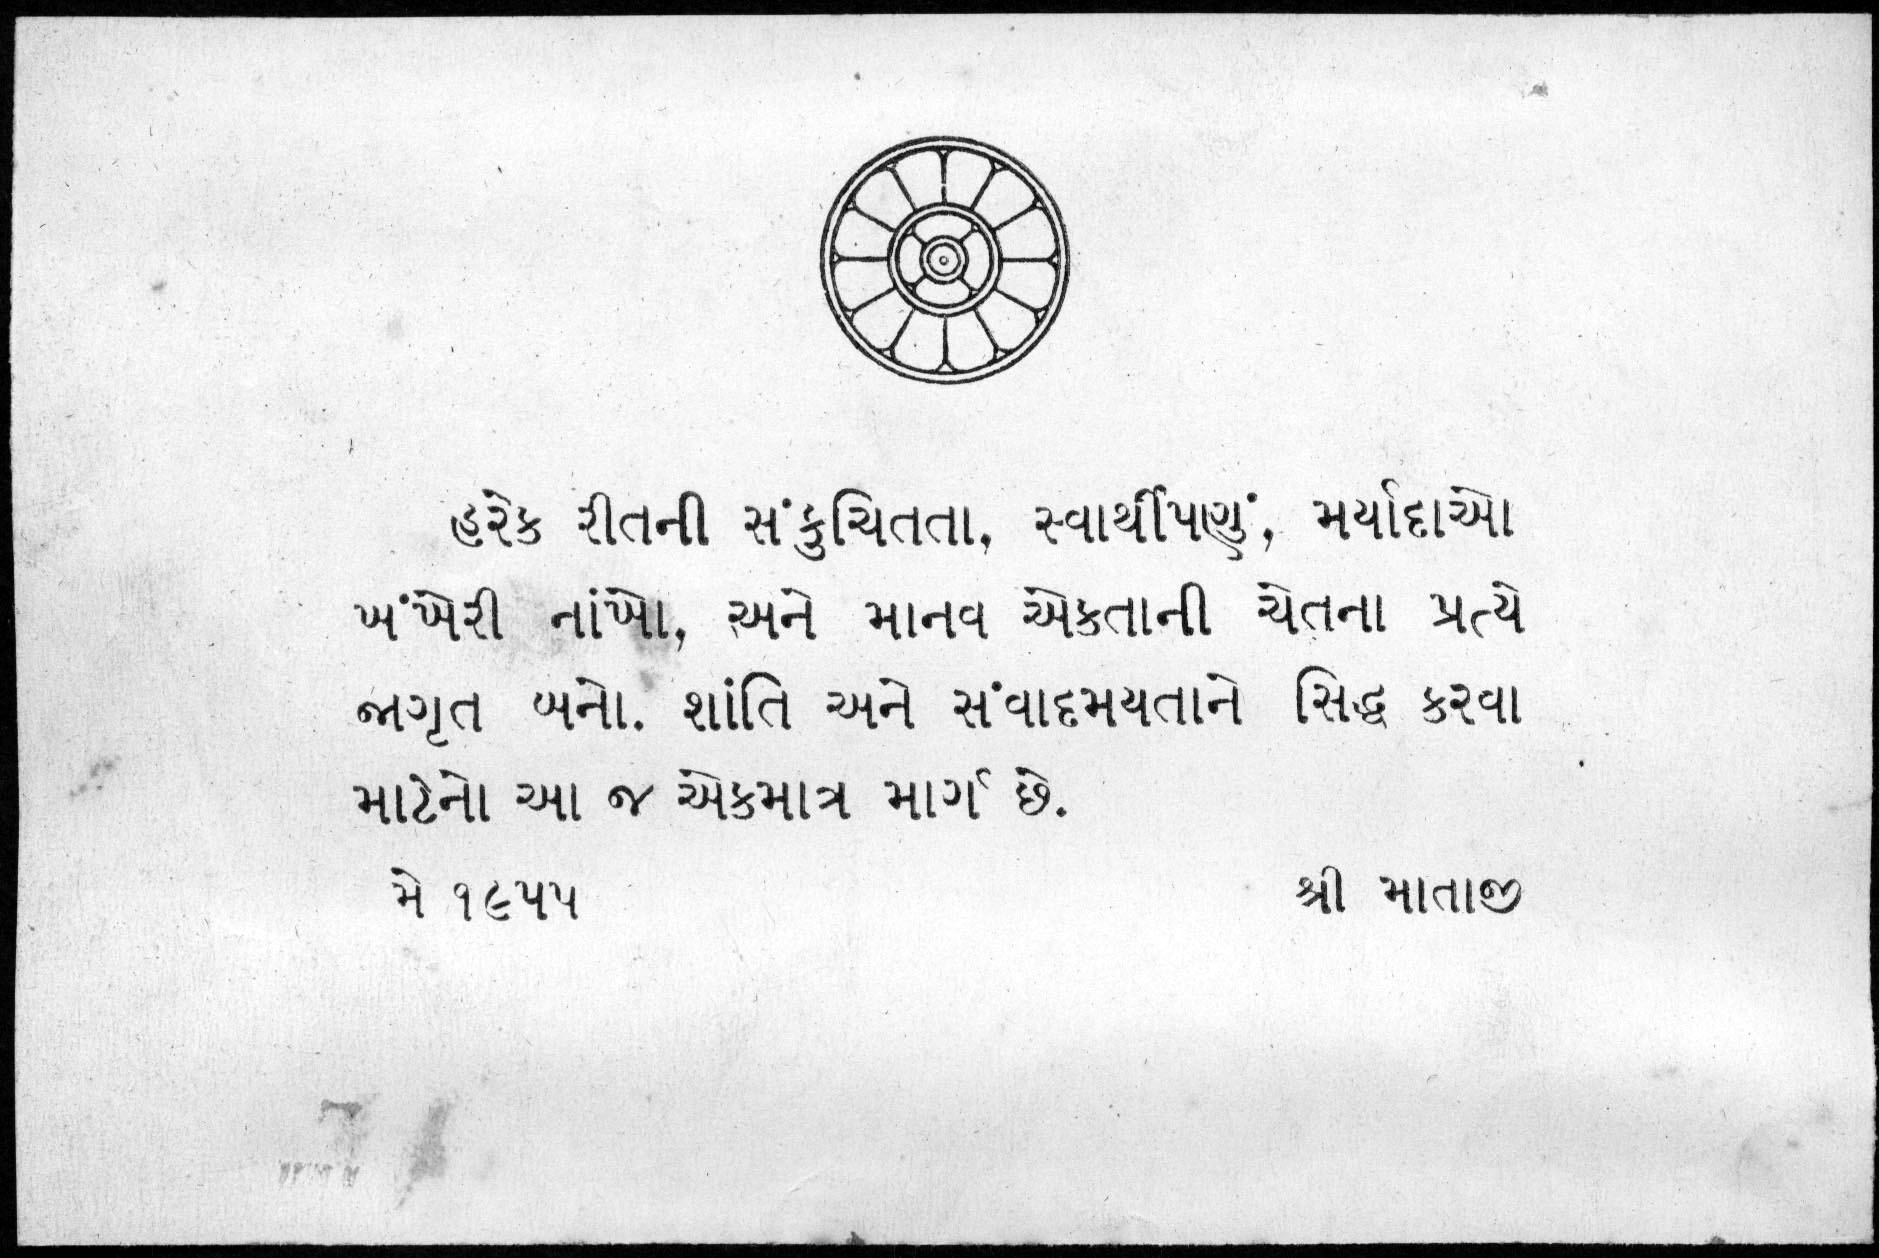 હરેક રીતની સંકુચિતતા, સ્વાર્થીપણું, મર્યાદાઓ
ખંખેરી નાંખો, અને માનવ એકતાની ચેતના પ્રત્યે
જાગૃત બનો. શાંતિ અને સંવાદમયતાને સિદ્ધ કરવા
માટેનો આ જ એકમાત્ર માર્ગ છે.
મે ૧૯૫૫
શ્રી માતાજી